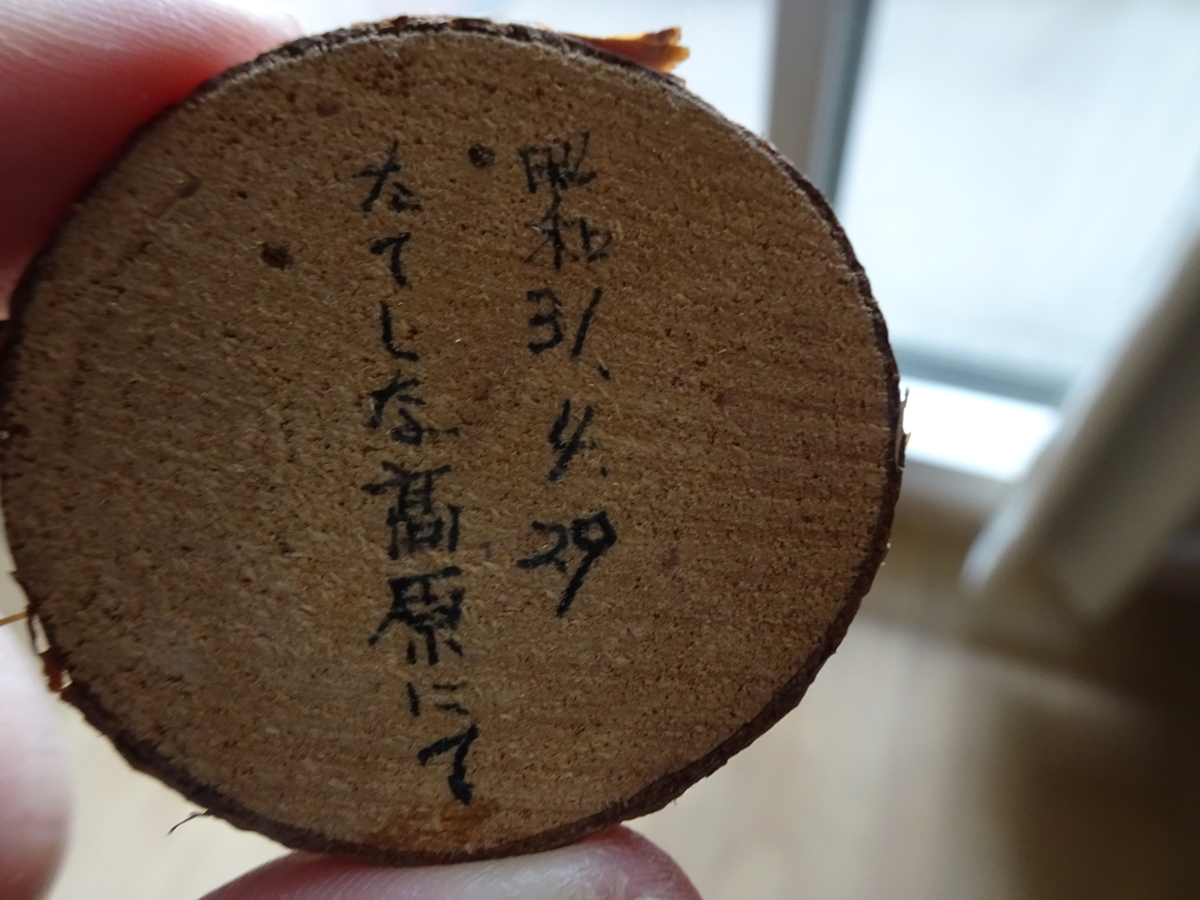 昭和31、4、29
たてしな髙原にて